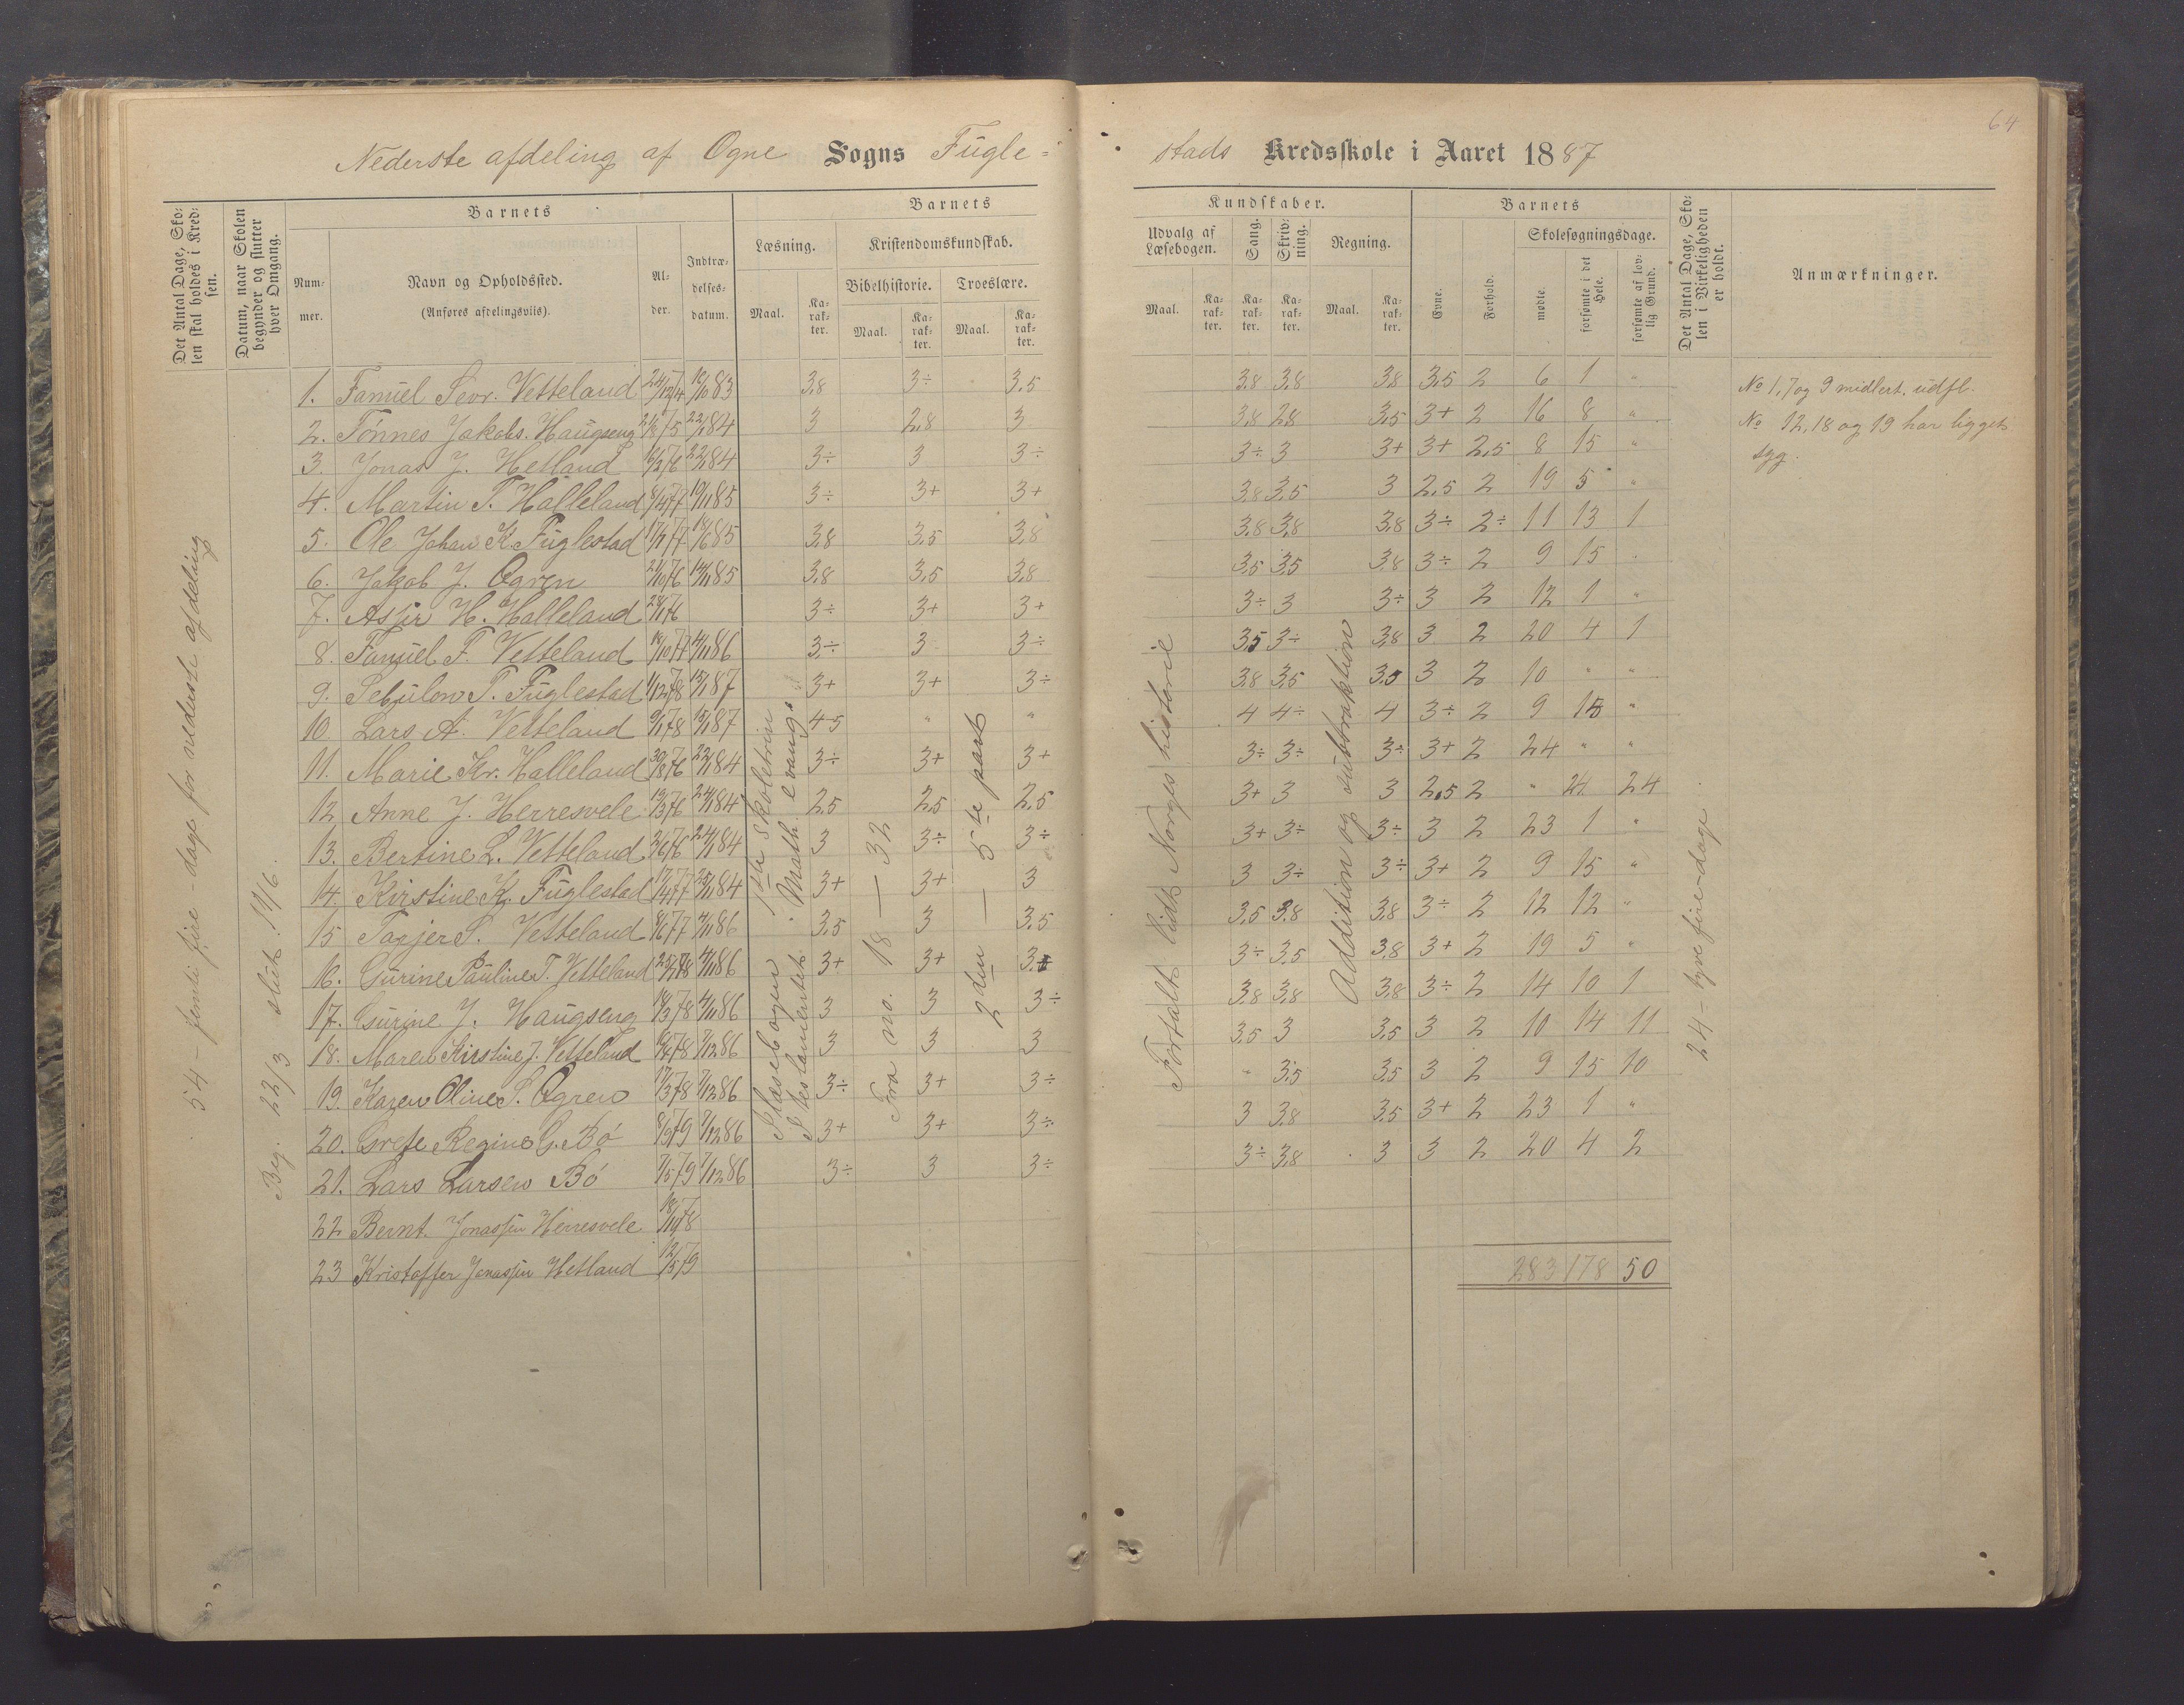 64
Nederste afdeling af Ogne Sogns Fugle-
stads Kredsskole i Aaret 1887
Det Antal Dage, Skolen skal holdes i Kredsen.
Datum, naar Skolen begynder og slutter hver Omgang.
Barnets
Nummer.
Navn og Opholdssted.
(Anføres afdelingsviis).
Alder.
Indtrædelsesdatum.
Barnets
Læsning.
Maal.
Karakter.
Kristendomskundskab.
Bibelhistorie.
Maal.
Karakter.
Troeslære.
Maal.
Karakter.
Kundskaber.
Udvalg af Læsebogen.
Maal.
Karakter.
Sang.
Karakter.
Skrivning.
Karakter.
Regning.
Maal.
Karakter.
Barnets
Evne.
Forhold.
Skolesøgningsdage.
mødte.
forsømte i det Hele.
forsømte af lovlig Grund.
Det Antal Dage, Skolen i Virkeligheden er holdt.
Anmærkninger.
54 - femti fire - dage for nederste afdeling
Beg. 22/3 slut. 14/6.
I læsebogen 1ste skoletrin
I testamentet Math. evang.
Fra no. 18 — 32
2den — 5te part
Fortalt lidt Norges historie
Addition og subtraktion
24 - tyve fire - dage.
1. Samuel Sevr. Vetteland 24/12 74 10/10 83 3,8 3÷ 3,5 3,8 3,8 3,8 3,5 2 6 1 "
2. Tønnes Jakobs. Haugseng 22/1 84 3 2,8 3 3,8 2,8 3,5 3+ 2 16 8 "
3. Jonas J. Hetland 22/1 84 3÷ 3 3÷ 3÷ 3 3+ 3+ 2,5 8 15 "
4. Martin T. Halleland 8/4 77 10/11 85 3÷ 3+ 3+ 3,8 3,5 3 2,5 2 19 5 "
5. Ole Johan K. Fuglestad 85 3,8 3,5 3,8 3,8 3,8 3,8 3÷ 2÷ 11 13 1
6. Jakob J. Ogren 85 3,8 3,5 3,8 3,5 3,5 3,8 3÷ 2 9 15 "
7. H. Halleland 3÷ 3+ 3+ 3÷ 3 3÷ 3 2 12 1 "
8. Samuel F. Vetteland 4/11 86 3÷ 3 3÷ 3,5 3÷ 3,8 3 2 20 4 1
9. Sebulon T. Fuglestad 1/12 78 87 3+ 3+ 3÷ 3,8 3,5 3,5 3 2 10 " "
10. Lars A. Vetteland 9/1 78 87 4-5 " " 4 4÷ 4 3÷ 2 9 15 "
11. Marie Kr. Halleland 30/8 76 22/1 84 3÷ 3+ 3+ 3÷ 3÷ 3÷ 3+ 2 24 " "
12 Anne J. Herresvele 19/3 76 24/1 84 2,5 2,5 2,5 3+ 3 3 2,5 2 " 24 24
13. Bertine L. Vetteland 24/1 84 3 3÷ 3÷ 3+ 3÷ 3÷ 3 2 23 1 "
14. Kirstine K. Fuglestad 25/1 84 3+ 3+ 3 3 3÷ 3÷ 3+ 2 9 15 "
15 Tagjer S. Vetteland 4/11 86 3,5 3 3,5 3,5 3,8 3,8 3÷ 2 12 12 "
16. Gurine Pauline T. Vetteland 4/11 86 3+ 3+ 3÷ 3,5 3,8 3+ 2 19 5 "
17. Gurine J. Haugseng 18/3 78 4/11 86 3 3 3÷ 3,8 3,8 3,8 3÷ 2 14 10 1
18. Maren Kirstine J. Vetteland 7/12 86 3 3 3 3,5 3 3,5 3 2 10 14 11
19. Karen Oline S. Ogren 17/3 78 7/12 86 3÷ 3+ 3÷ " 3,5 3,5 3 2 9 15 10
20. Grete Regine G. Bø 8/9 79 7/12 86 3+ 3+ 3÷ 3 3,8 3,5 3+ 2 23 1 "
21. Lars Larsen Bø 7/5 79 7/12 86 3÷ 3 3÷ 3÷ 3,8 3 3 2 20 4 2
22 Bernt Jonassen Herresvele 78
23 Kristoffer Jonassen Hetland 12/5 79
283 178 50
No 1, 7 og 9 midlert. udfl.
No 12, 18 og 19 har ligget
syg.